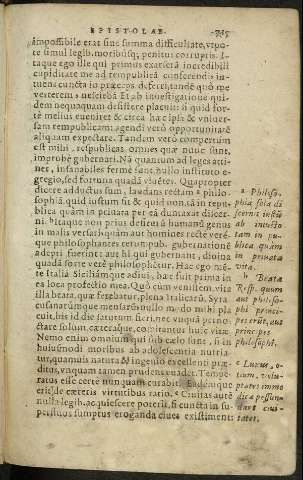 EPISTOLAE.
impossibile erat sine summa difficultate, utpo
te simul legib. moribusq; penitus corruptis. I-
taque ego ille qui primus exarserā incredibili
cupiditate me ad rempublicā conferendi, in-
tuens cuncta in præceps deferri, tandē quò me
verterem, nesciebā. Et ab investigatione qui-
dem nequaquam desistere placuit: si quid for-
tè melius eveniret & circa hæc ipsa & univer-
sam rempublicam: agendi verò opportunitatē
aliquam expectare. Tandem verò compertum
est mihi, respublicas omnes quæ nunc sunt,
improbè gubernari. Nā quantum ad leges atti-
net, insanabiles fermè sunt, nullo instituto e-
gregio, sed fortuna quadā
dicere adductus sum, laudans rectam a philo-
sophiā, quid iustum sit & quid non, tā in repu-
blica quàm in privata per eā
Itaque non prius desituru humanū genus
in malis versari, quàm aut homines rectè verè-
que philosophantes rerum pub. gubernationē
adepti fuerint: aut hi qui gubernant, divina
quadā sorte verè philosophētur. Hac ego mē-
te Italiā Siciliamque adivi, hæc fuit prima in
ea loca profectio mea. Quò cùm venissem, vita
illa beata, quæ ferebatur, plena Italicarū, Syra
cusanarūmque mensarū nullo modo mihi pla
cuit, bis in die saturum fieri, nec unquā
solum, cæteraque, comitantur huic vitæ.
Nemo enim omnium qui sub cælo sunt, si in
huiusmodi moribus ab adolescentia nutria-
tur, quamvis natura & ingenio excellenti præ-
ditus, unquam tamen prudens evadet. Tempe-
ratus esse certè nunquam curabit. Eademque
erit de cæteris virtutibus ratio. c Civitas autē
nulla legib. ac quiescere poterit, si cuncta in su-
perfluos sumptus eroganda cives existiment:
a Philoso-
phia sola di
scerni iustū
ab iniusto
tam in pu-
blica quàm
in privata
vita.
b Beatæ
Resp. quum
aut philoso-
phi princi-
pes erūt, aut
principes
philosophi.
c Luxus, o-
tium, volu-
ptates immo
dicæ pessun-
dant civi-
tates.